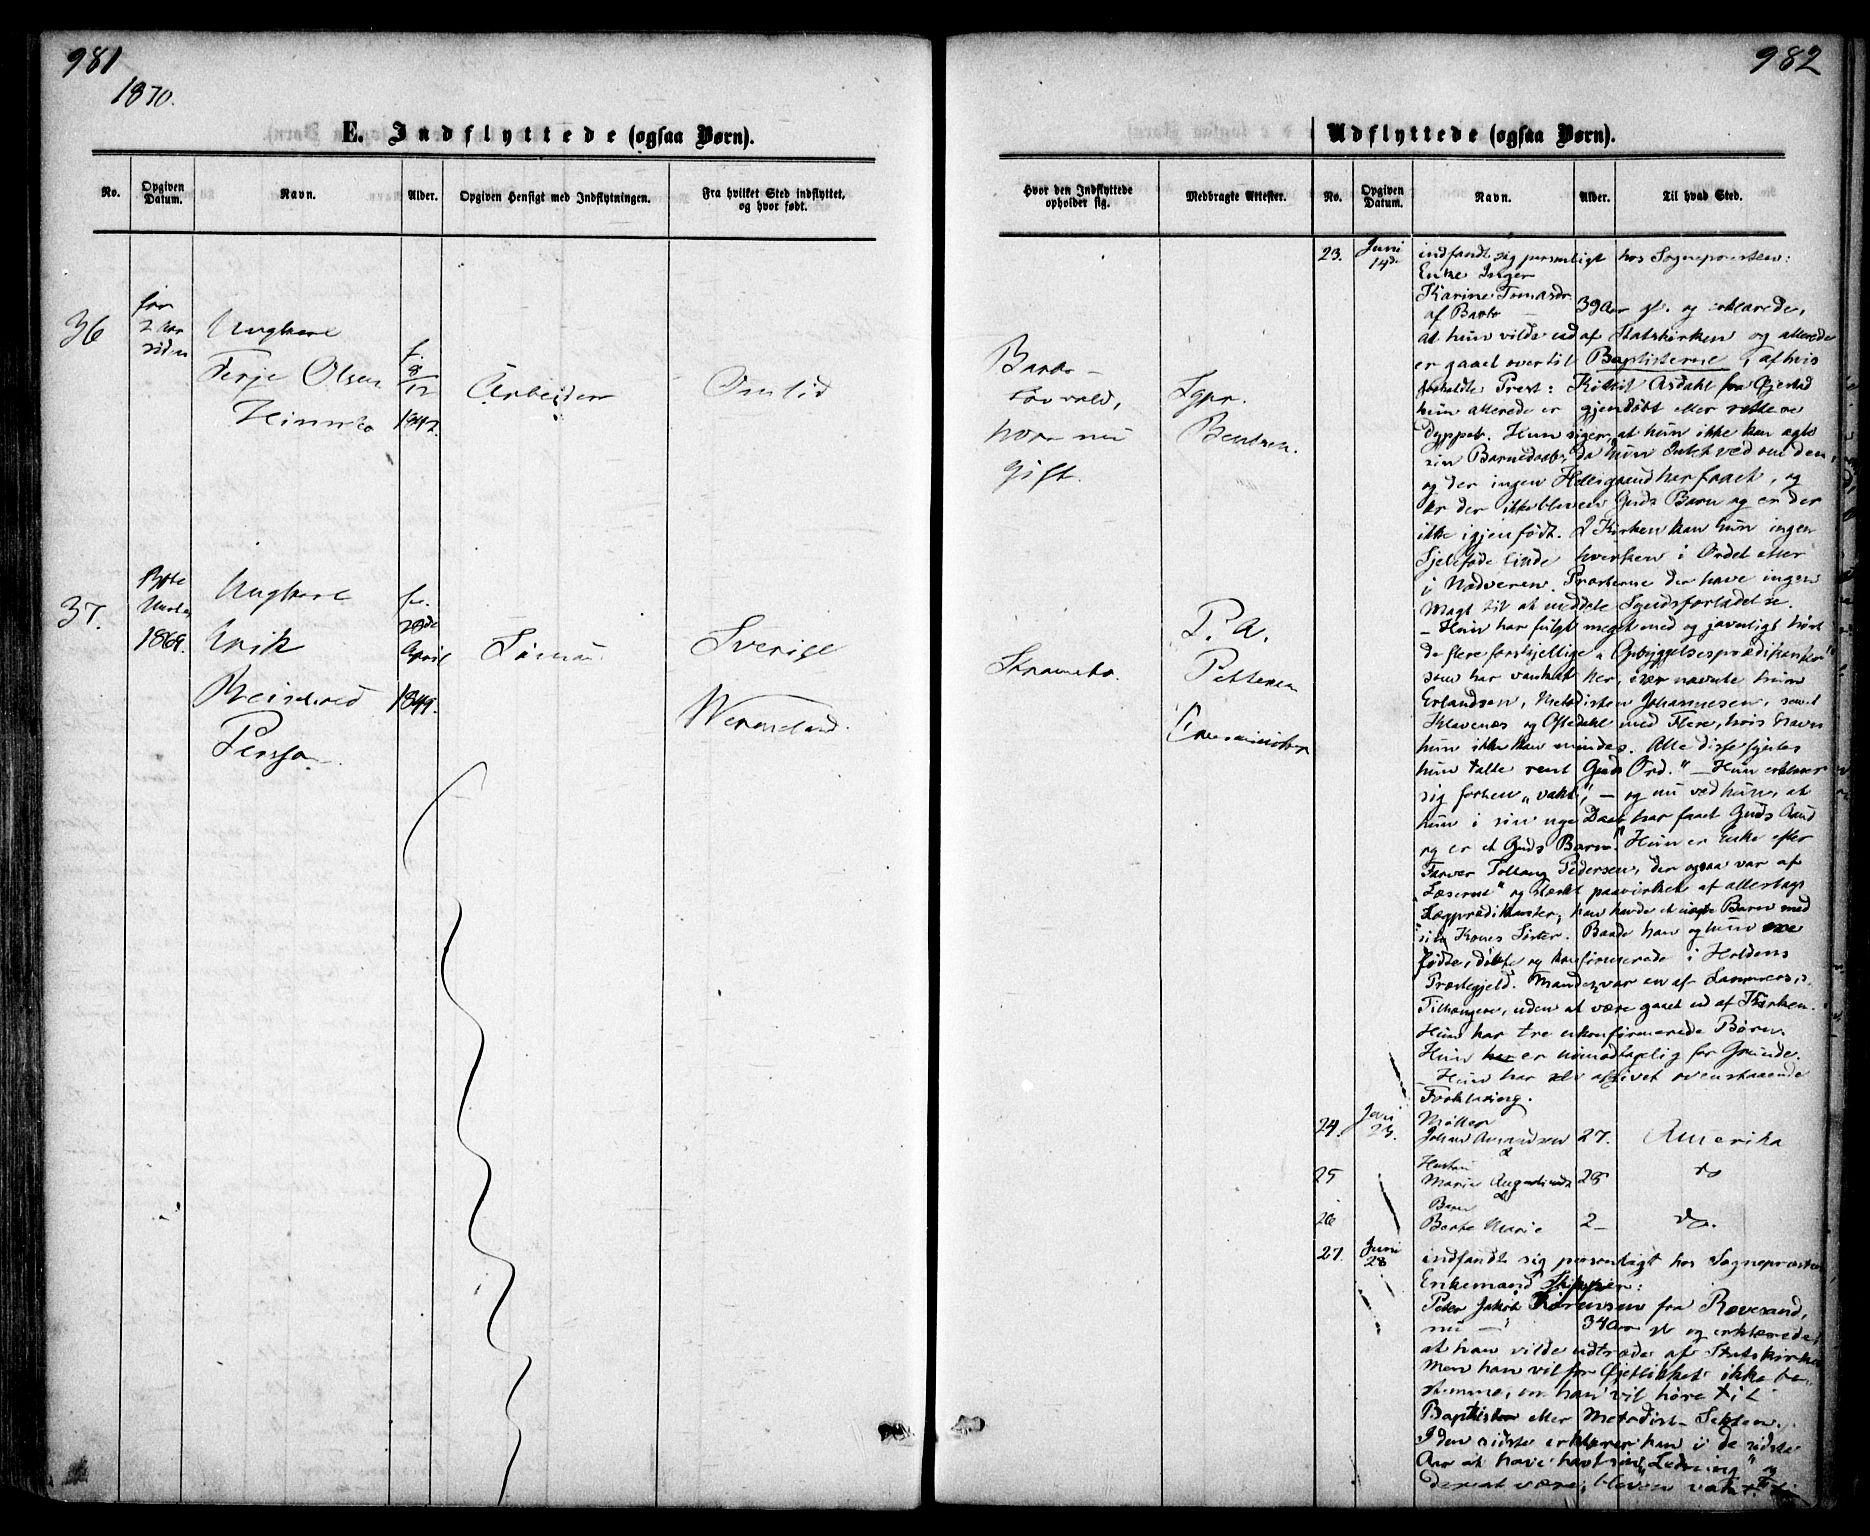 981
1870.
E. Indflyttede (ogsaa Børn).
No.
Opgiven Datum.
Navn.
Alder.
Opgiven Hensigt med Indflytningen.
Fra hvilket Sted indflyttet, og hvor født.
36
for
2 Aar
siden
Ungkarl
Terje Olsen
f.
8/12
1847.
Arbeider
Omlid
37.
1869.
Ungkarl
Erik
Person
f.
29de
April
1849.
Sømand
Sverige
Wermeland.
982
Udflyttede (ogsaa Børn).
Hvor den Indflyttede opholder sig.
Medbragte Attester.
No.
Opgiven Datum.
Navn.
Alder.
Til hvad Sted.
Barbo
hvor nu
gift.
Sgpr.
Bentsen.
P. A.
Pettersen
23. Juni 14de
indfandt sig personligt hos Sognepræsten:
Enke Inger
Karine Tomasdr.
af Barbo — 39 Aar gl. og erklærede,
at hun vilde ud af Statskirken og allerede
er gaaet over til Baptisterne, af hvis
Prest: Asdahl fra Øjestad
hun allerede er gjendøbt eller rettere
dyppet. Hun siger, at hun ikke kan agte
sin Barnedaab, da hun Intet ved om den,
og der ingen Helligaand har faaet, og
er der ikke bleven Guds Barn og er der
ikke igjenfødt. I Kirken kan hun ingen
Sjeleføde finde hverken i Ordet eller
i Nadveren. Præsterne der have ingen
Magt til at meddele Syndsforladelse.
— Hun har fulgt meget med og jævnligt hørt
de flere forskjellige Opbyggelsesprædikanter
som har vanket her, især nævnte hun
Erlandsen, Metodisten Johannesen, samt
Klavenæs og Oftedahl med Flere, hvis Navn
hun ikke kan mindes. Alle disse syntes
hun talte rent Guds Ord." — Hun erklærer
sig forhen „vakt", — og nu ved hun, at
hun i sin nye Daab har faaet Guds Aand
og er et Guds Barn. Hun er Enke efter
Farver Tollang Pedersen, der ogsaa var af
„Læserne" og stærkt paavirket af alleslags
Lægprædikanter, han havde et uægte Barn med
sin Kones Søster. Baade han og hun ere
fødte, døbte og konfirmerede i Holdens
Præstegjeld. Manden var en af Lammers's
Tilhængere, uden at være gaaet ud af Kirken.
Hun har tre ukonfirmerede Børn.
Hun er uimodtagelig for Grunde.
— Hun har selv afgivet ovenstaaende
Forklaring.
24. Juni 23.
Møller
Johan Amundsen 27. Amerika
25
Hustru
Marie 28 do
26
Barn
Berte Marie 2 — do.
27. Juni 28
indfandt sig personligt hos Sognepræsten
Enkemand Skipper:
Peter Jakob Sørensen fra Revesand,
nu — 34 Aar gl. og erklærede,
at han vilde udtræde af Statskirken
Men han vil for Øjeblikket ikke be-
stemme, om han vil høre til
Baptist- eller Metodist-Sekten.
I den sidste erklærer han i de sidste
Aar at have havt sin „Ledning" og
derved være bleven vakt.